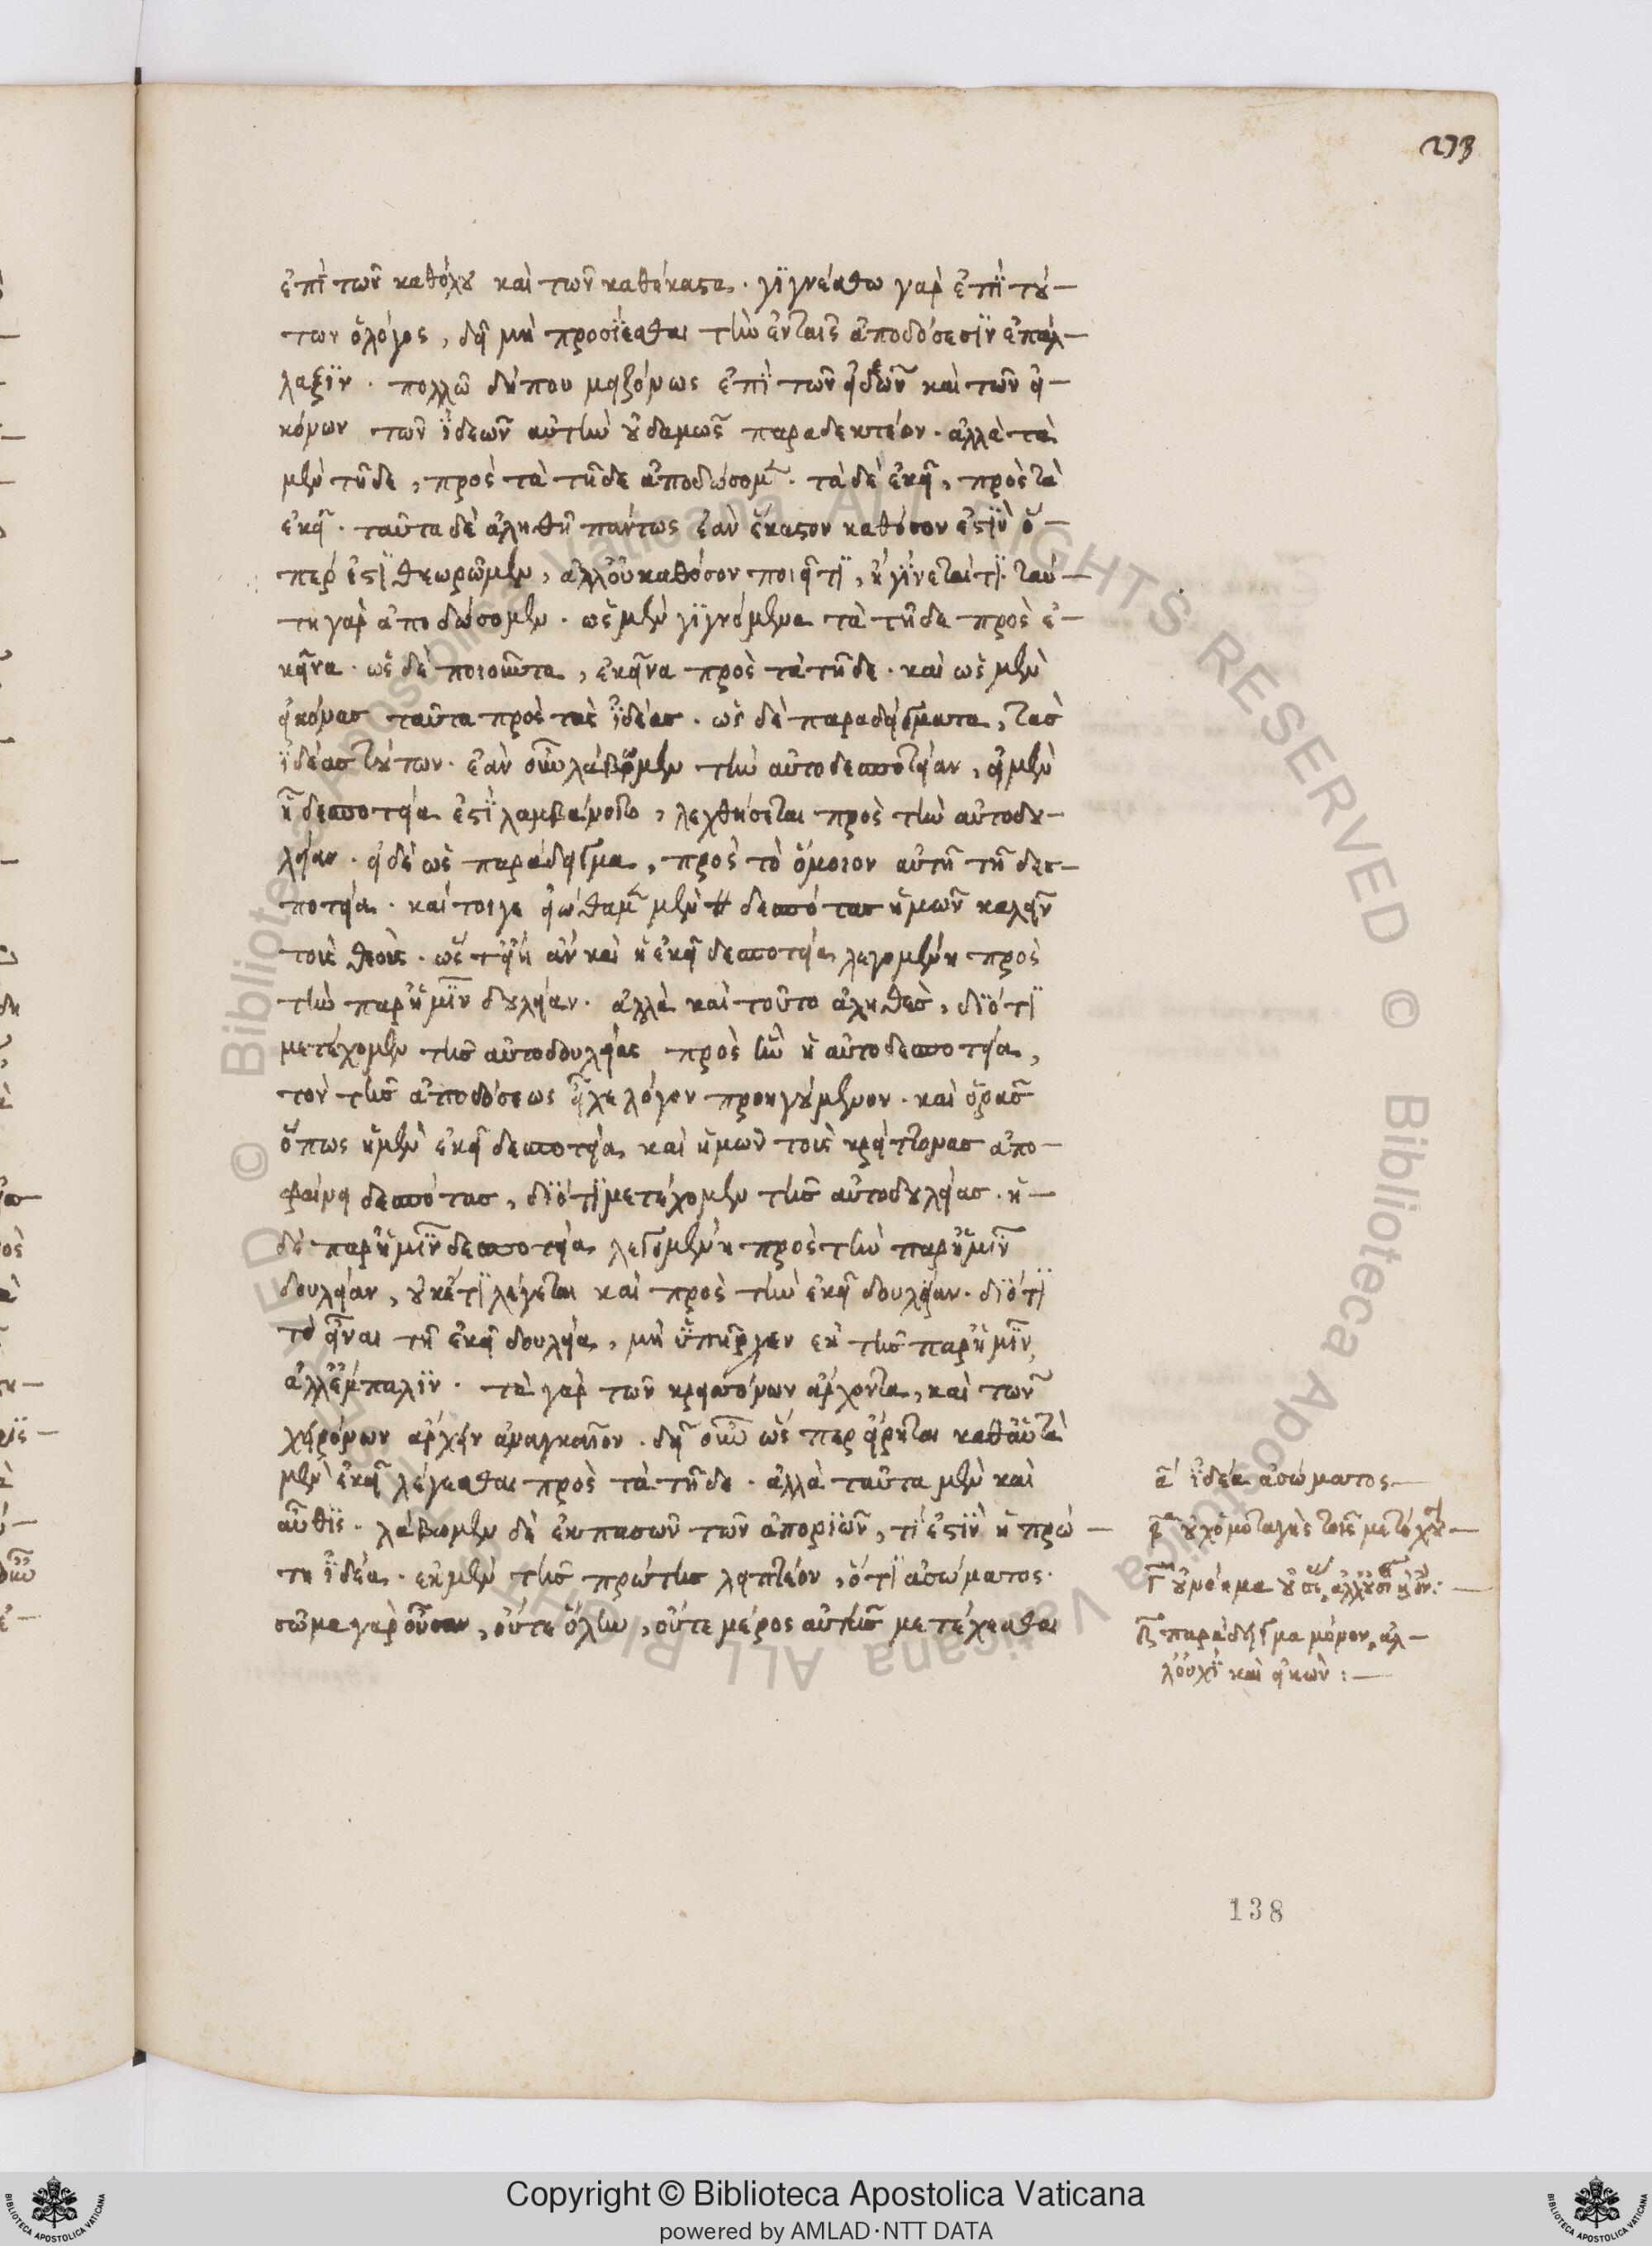 273
ἐπὶ τῶν καθόλου καὶ τῶν καθέκαστα. γιγνέσθω γὰρ ἐπὶ τού-
των ὁ λόγος, δεῖ μὴ προσίεσθαι τὴν ἐν ταῖς ἀποδόσεσιν ἐπάλ-
λαξιν. πολλῶ δήπου μειζόνως ἐπὶ τῶν εἰδῶν καὶ τῶν εἰ-
κόνων τῶν ἰδεῶν αὐτὴν οὐδαμῶς παραδεκτέον. ἀλλὰ τὰ
μὲν τῆδε, πρὸς τὰ τῆδε ἀποδώσομεν. τὰ δὲ ἐκεῖ, πρὸς τὰ
ἐκεῖ. ταῦτα δὲ ἀληθῆ πάντως ἐὰν ἕκαστον καθόσον ἐστὶν ὅ-
περ ἐστὶ θεωρῶμεν, ἀλλ' οὐ καθόσον ποιεῖ τὶ, ἢ γίνεται τὶ. ταύ-
τη γὰρ ἀποδώσομεν. ὡς μὲν γιγνόμενα τὰ τῆδε πρὸς ἐ-
κεῖνα. ὡς δὲ ποιοῦντα, ἐκεῖνα πρὸς τὰ τῆδε. καὶ ὡς μὲν
εἰκόνας ταῦτα πρὸς τὰς ἰδέας. ὡς δὲ παραδείγματα, τὰς
ἰδέας τούτων. ἐὰν οὖν λάβωμεν τὴν αὐτοδεσποτείαν, εἰ μὲν
ἧ δεσποτεία ἐστὶ λαμβάνοιτο, λεχθήσεται πρὸς τὴν αὐτοδου-
λείαν. εἰ δὲ ὡς παράδειγμα, πρὸς τὸ ὅμοιον αὐτῆ τῆ δεσ-
ποτεία. καί τοι γε εἰώθαμεν μὲν δεσπότας ἡμῶν καλεῖν
τοὺς θεούς. ὥστ' εἴη ἂν καὶ ἡ ἐκεῖ δεσποτεία λεγομένη πρὸς
τὴν παρ' ἡμῖν δουλείαν. ἀλλὰ καὶ τοῦτο ἀληθὲς, διότι
μετέχομεν τῆς αὐτοδουλείας πρὸς ἣν ἡ αὐτοδεσποτεία,
τὸν τῆς ἀποδόσεως εἶχε λόγον προηγούμενον. καὶ ὁρᾶς
ὅπως ἡ μὲν ἐκεῖ δεσποτεία, καὶ ἡμῶν τοὺς κρείττονας ἀπο-
φαίνει δεσπότας, διότι μετέχομεν τῆς αὐτοδουλείας. ἡ-
δὲ παρ' ἡμῖν δεσποτεία λεγομένη πρὸς τὴν παρ' ἡμῖν
δουλείαν, οὐκέτι λέγεται καὶ πρὸς τὴν ἐκεῖ δουλείαν. διότι
τὸ εἶναι τῆ ἐκεῖ δουλεία, μὴ ὑπῆρχεν ἐκ τῆς παρ' ἡμῖν,
ἀλλ' ἔμπαλιν. τὰ γὰρ τῶν κρεισσόνων ἄρχοντα, καὶ τῶν
χειρόνων ἄρχειν ἀναγκαῖον. δεῖ οὖν ὥσπερ εἴρηται καθ' αὑτὰ
μὲν ἐκεῖ λέγεσθαι πρὸς τὰ τῆδε. ἀλλὰ ταῦτα μὲν καὶ
αὖθις. λάβωμεν δὲ ἐκ πασῶν τῶν ἀποριῶν, τί ἐστὶν ἡ πρώ-
τη ἰδέα. ἐκ μὲν τῆς πρώτης ληπτέον, ὅτι ἀσώματος.
σῶμα γὰρ οὖσαν, οὔτε ὅλην, οὔτε μέρος αὐτῆς μετέχεσθαι
α ἰδέα ἀσώματος
β οὐχ ὁμοταγὴς τοῖς μετόχοις
γ οὐ νόημα οὖσα, ἀλλ' οὐσία
δ παράδειγμα μόνον, ἀλ-
λ' οὐχὶ καὶ εἰκών:
138
Copyright © Biblioteca Apostolica Vaticana
powered by AMLAD·NTT DATA